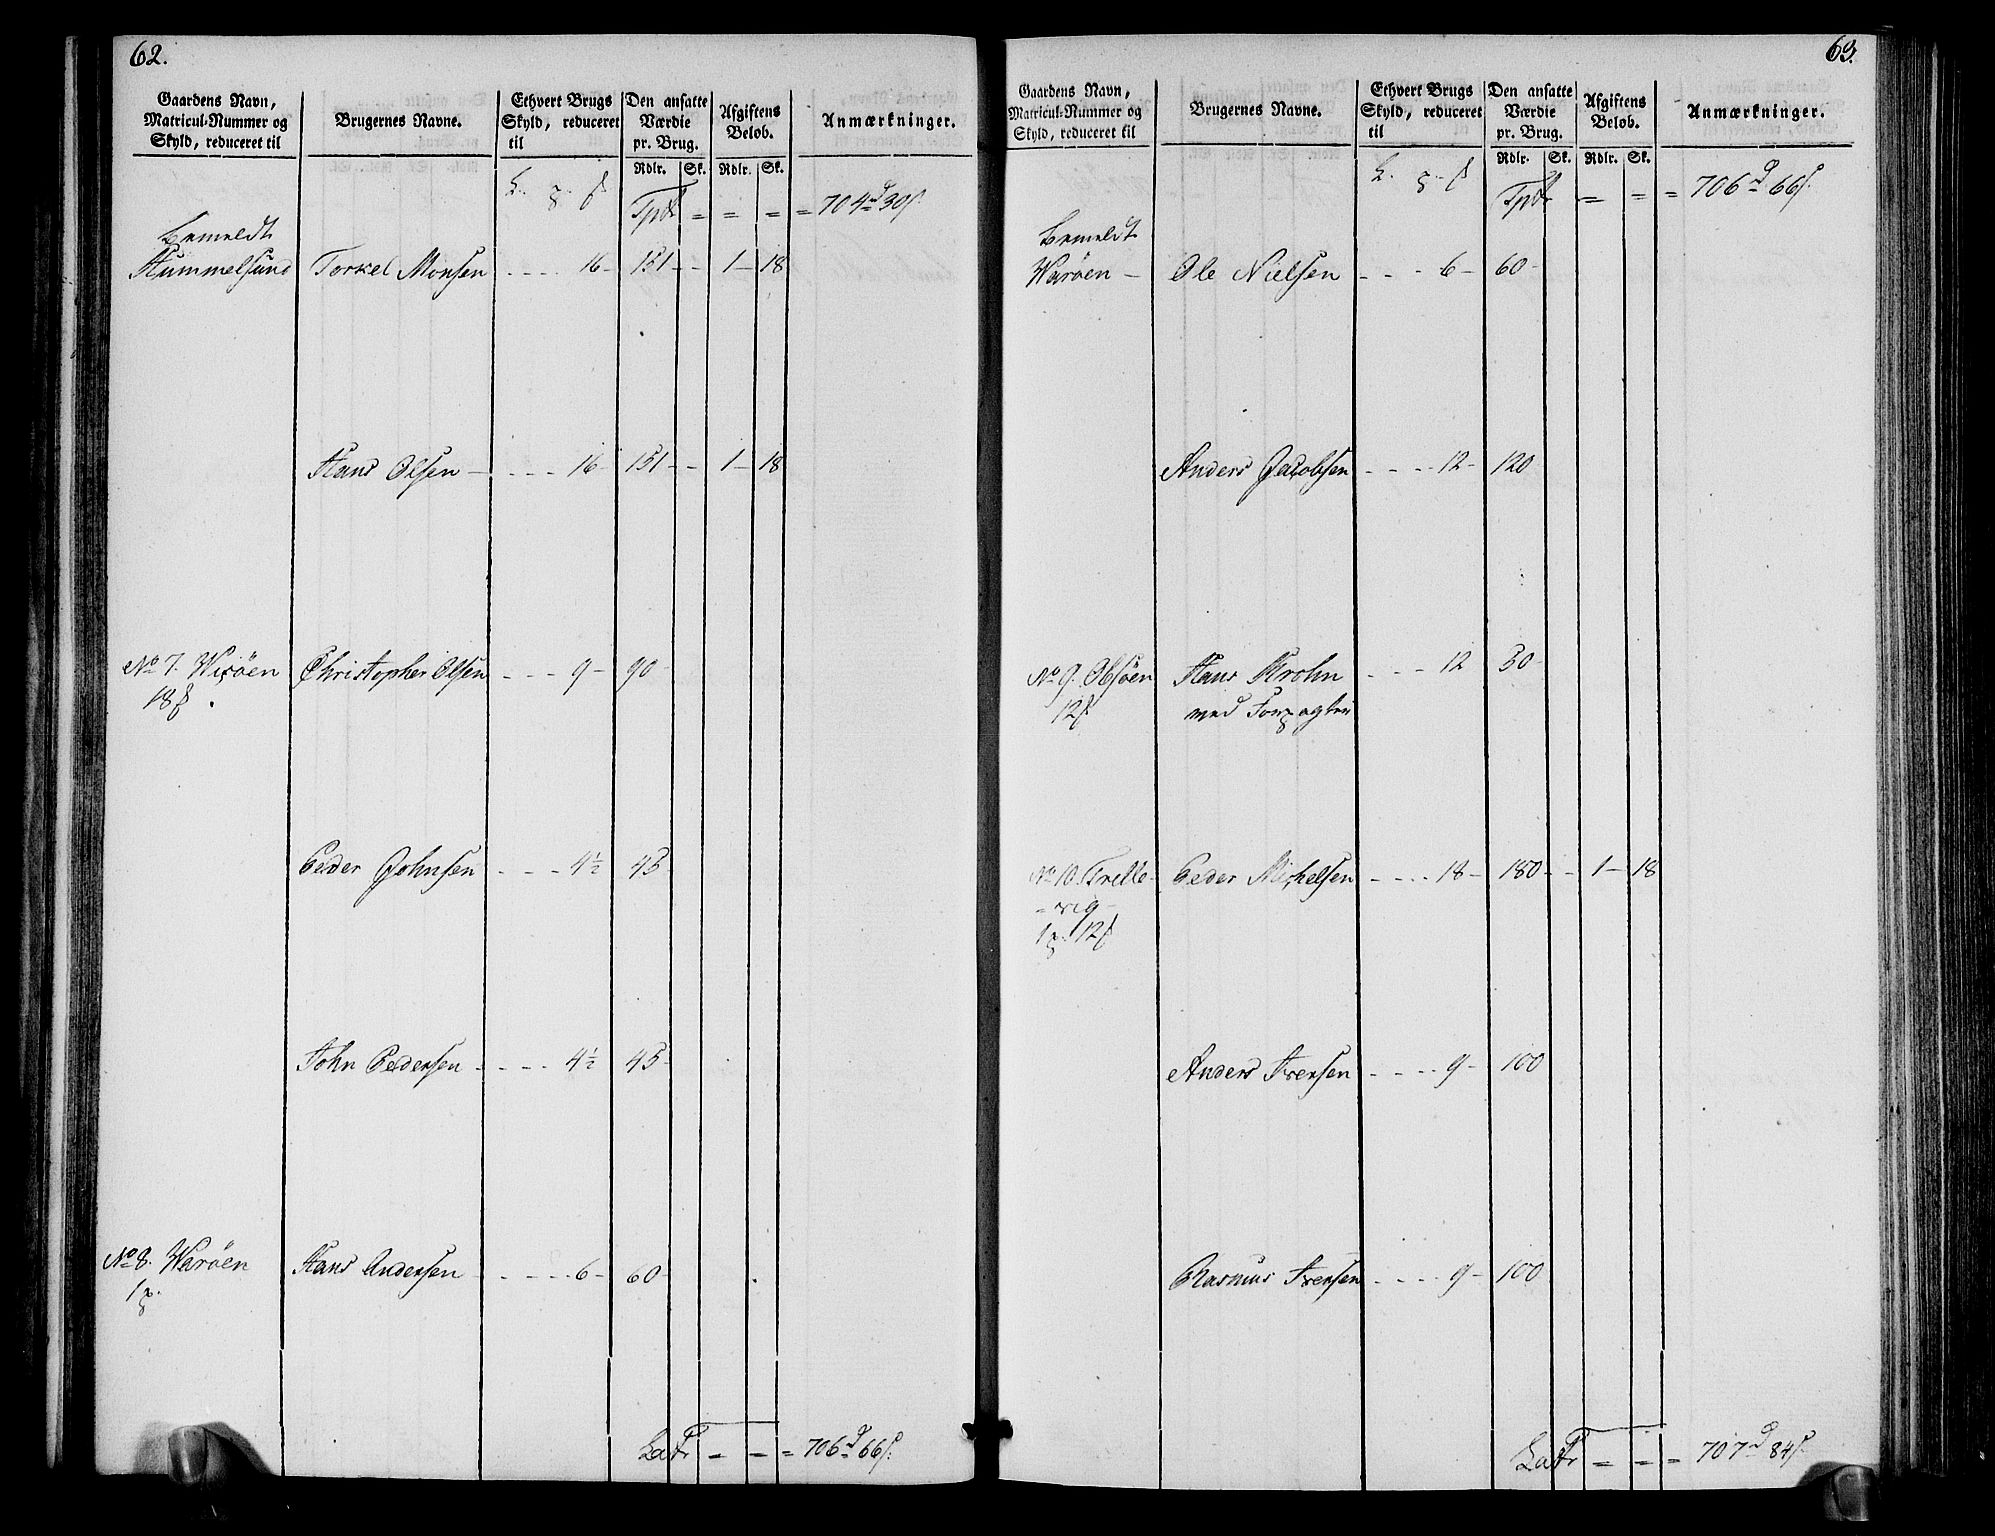 62.
Gaardens Navn, Matricul-Nummer og Skyld, reduceret til | Brugernes Navne. | Ethvert Brugs Skyld, reduceret til | Den ansatte Værdie pr. Brug. | Afgiftens Beløb. | Anmærkninger.
Rdlr. Sk. Rdlr. Sk.
Tpt = = = = 704 30
bemeldt
Hummelsund Torkel Monsen - - - - 16 - 151 - - 1 - 18
Hans Olsen - - - - 16 - 151 - - 1 - 18
No 7. Wisöen Christopher Olsen - - - 9 - 90 -
18
Peder Johnsen - - - - 4½ 45
John Pedersen - - - - 4½ 45 -
No 8. Waröen Hans Andersen - - - - 6 - 60 -
1
Latr = = = 706 66
63.
Gaardens Navn, Matricul-Nummer og Skyld, reduceret til | Brugernes Navne. | Ethvert Brugs Skyld, reduceret til | Den ansatte Værdie pr. Brug. | Afgiftens Beløb. | Anmærkninger.
Rdlr. Sk. Rdlr. Sk.
Tpt = = = 706 66
bemeldt
Waröen - Ole Nielsen - - - 6 - 60 -
Anders Jacobsen - - - - 12 - 120
No 9. Obsöen Hans Krohn - - - 12 30 -
12 med Forpagter
No 10. Trelle- Peder Mickelsen - - - - 18 - 180 - - 1 - 18
= vig -
1 12
Anders Iversen - - - - 9 - 100
Rasmus Iversen - - - - 9 - 100
Latr = = = 707 84